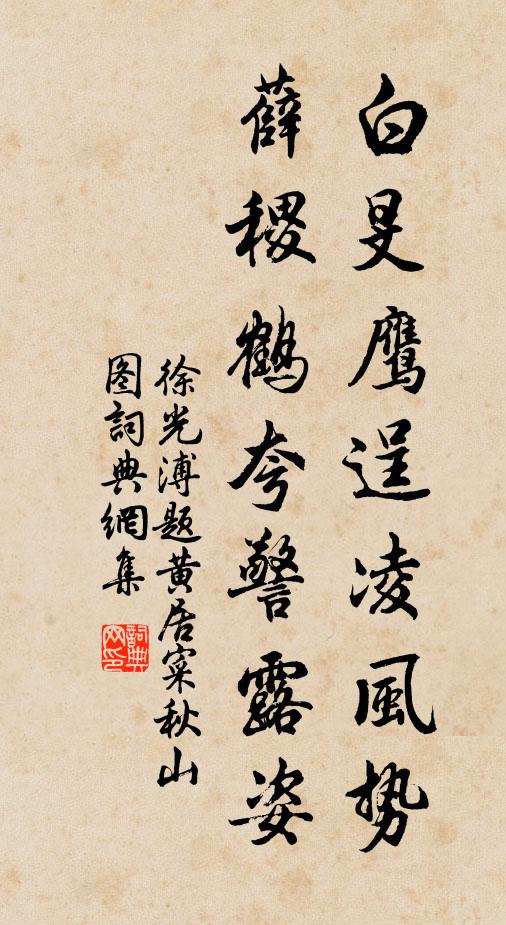 白旻鹰逞凌風势
薛稷鶴夸警露姿
徐光溥题黄居寀秋山
图詞典網集
詞典网印